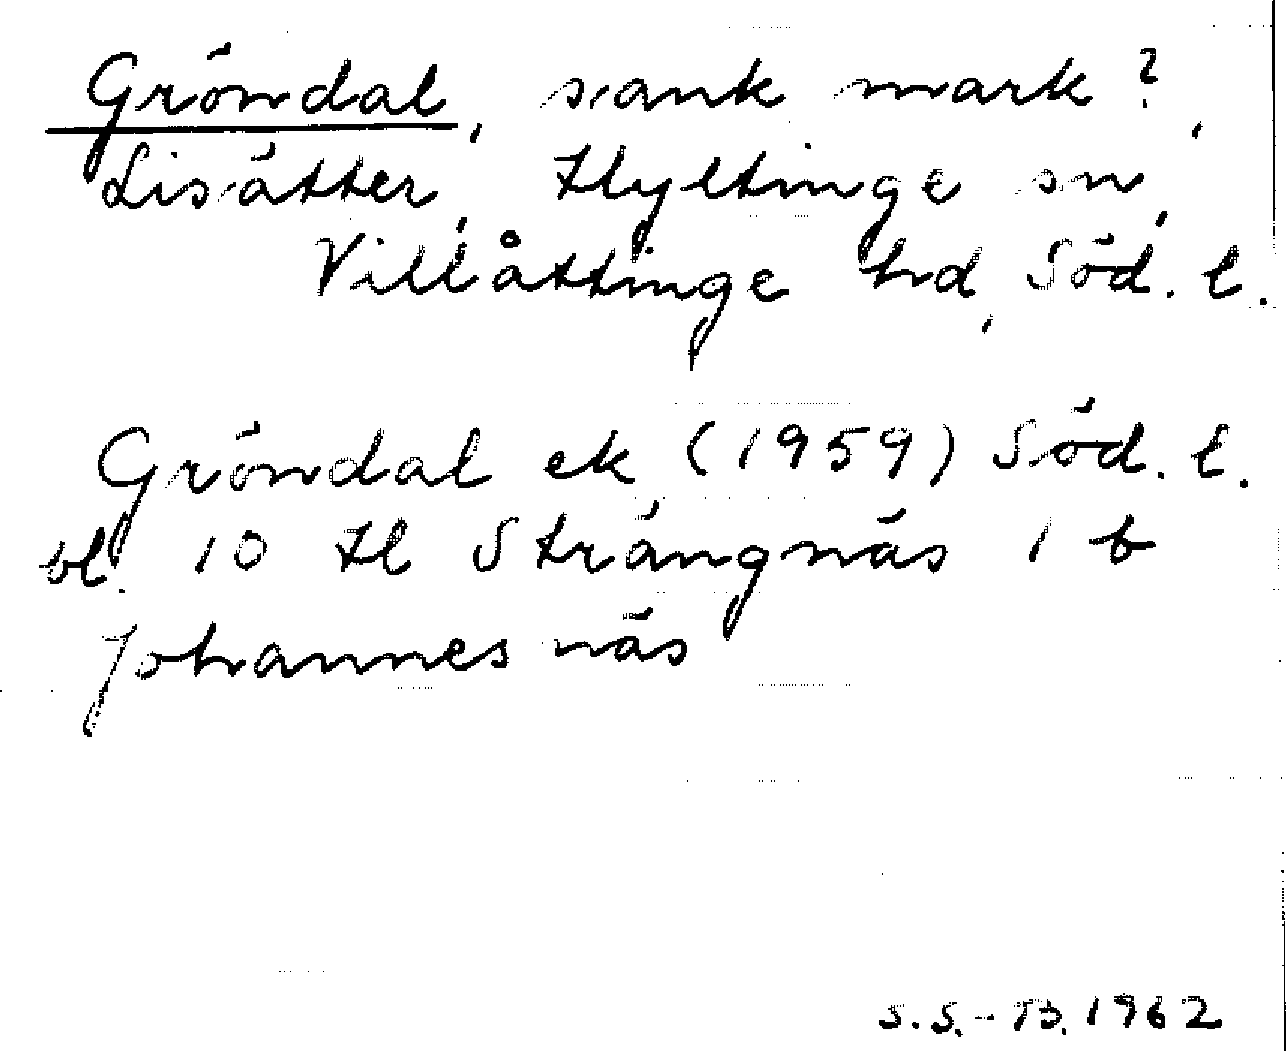 Gröndal, sank mark?,
Lisätter, Hyltinge sn,
Villåttinge hd, Söd. l.
Gröndal ek, (1959) Söd. l.
bl. 10 H Strängnäs 1 b
Johannesnäs
S.S.-B. 1962